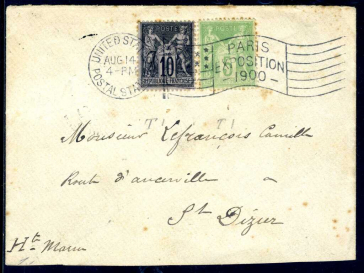 UNITED STA
AUG 14
4-PM
POSTAL STA
POSTE
10
REPUBLIQUE FRANCAISE
5
PARIS
EXPOSITION
1900
T T
Monsieur Lefrançois Camille
Route d'ancerville
St Dizier
Hte Marne